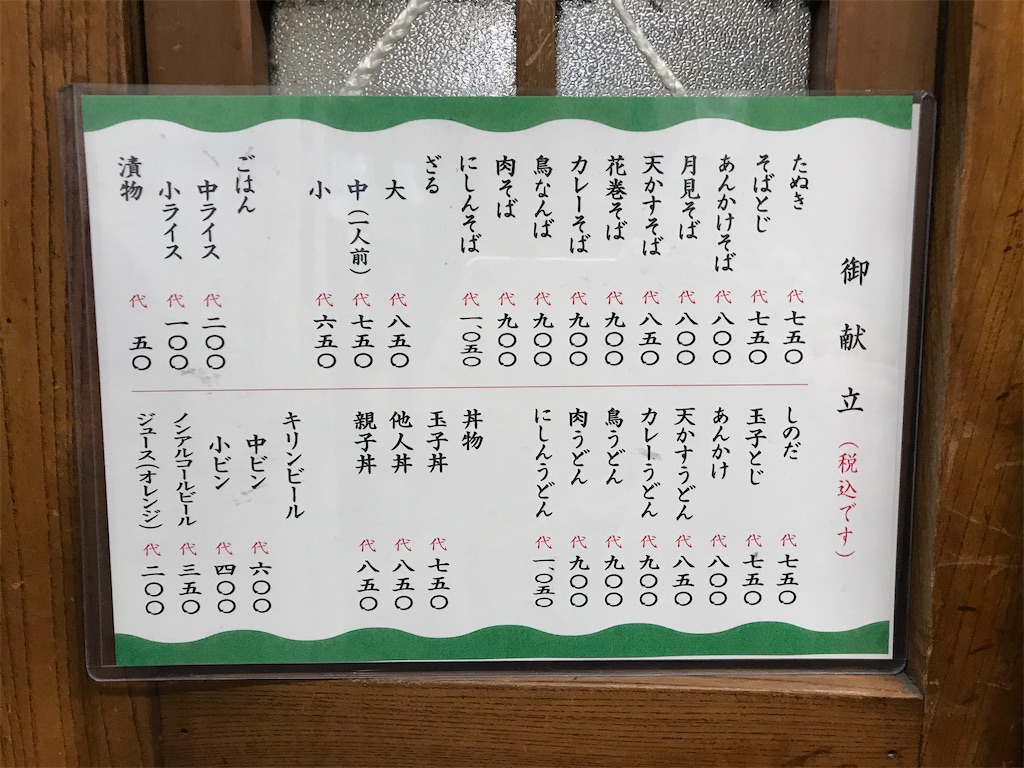 御献立(税込です)
たぬき 代 七五〇
そばとじ 代 七五〇
あんかけそば 代 八〇〇
月見そば 代 八〇〇
天かすそば 代 八五〇
花巻そば 代 九〇〇
カレーそば 代 九〇〇
鳥なんば 代 九〇〇
肉そば 代 九〇〇
にしんそば 代 一、〇五〇
ざる
大 代 八五〇
中(一人前) 代 七五〇
小 代 六五〇
ごはん
中ライス 代 二〇〇
小ライス 代 一〇〇
漬物 代 五〇
しのだ 代 七五〇
玉子とじ 代 七五〇
あんかけ 代 八〇〇
天かすうどん 代 八五〇
カレーうどん 代 九〇〇
鳥うどん 代 九〇〇
肉うどん 代 九〇〇
にしんうどん 代 一、〇五〇
丼物
玉子丼 代 七五〇
他人丼 代 八五〇
親子丼 代 八五〇
キリンビール
中ビン 代 六〇〇
小ビン 代 四〇〇
ノンアルコールビール 代 三五〇
ジュース(オレンジ) 代 二〇〇